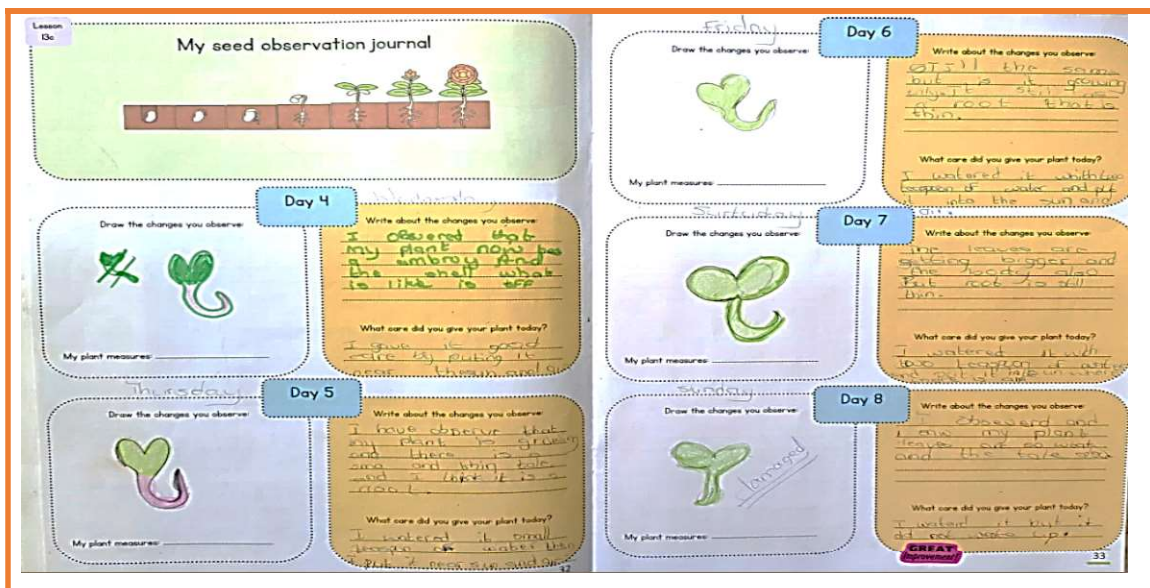 Lesson
13c
My seed observation journal
Day 4
Draw the changes you observe:
My plant measures:
Write about the changes you observe:
I obsevered that
my plant now has
a embroy And
the shell what
is like is off
What care did you give your plant today?
I gave it good
care by puting it
near
Thursday
Day 5
Draw the changes you observe:
My plant measures:
Write about the changes you observe:
I have observe that
my plant is growing
and there is a
sma and thin tale
and I think it is a
root.
What care did you give your plant today?
I watered it small
water then
I put it near sun and
32
Friday
Day 6
Draw the changes you observe:
My plant measures:
Write about the changes you observe:
still the same
but is it growing
still
A root that is
thin.
What care did you give your plant today?
I watered it
teaspoon of water and put
it into the sun and
Surturday
Day 7
Draw the changes you observe:
My plant measures:
Write about the changes you observe:
The leaves are
getting bigger and
the body also
But root is still
thin.
What care did you give your plant today?
I watered it with
two teaspoon of
Sunday
Day 8
Draw the changes you observe:
damaged
My plant measures:
Write about the changes you observe:
I obseverd and
I saw my plant
leaves are so weak
and the tale also
What care did you give your plant today?
I waterd it but it
did not wake up.
GREAT
Improvement!
33